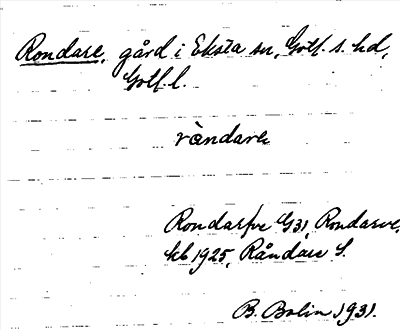 Rondare, gård i Eksta sn, Gotl. s. hd,
Gotl. l.
ràndarε
Rondarfve G31, Rondarve,
kb 1925, Råndare S.
B. Bolin 1931.